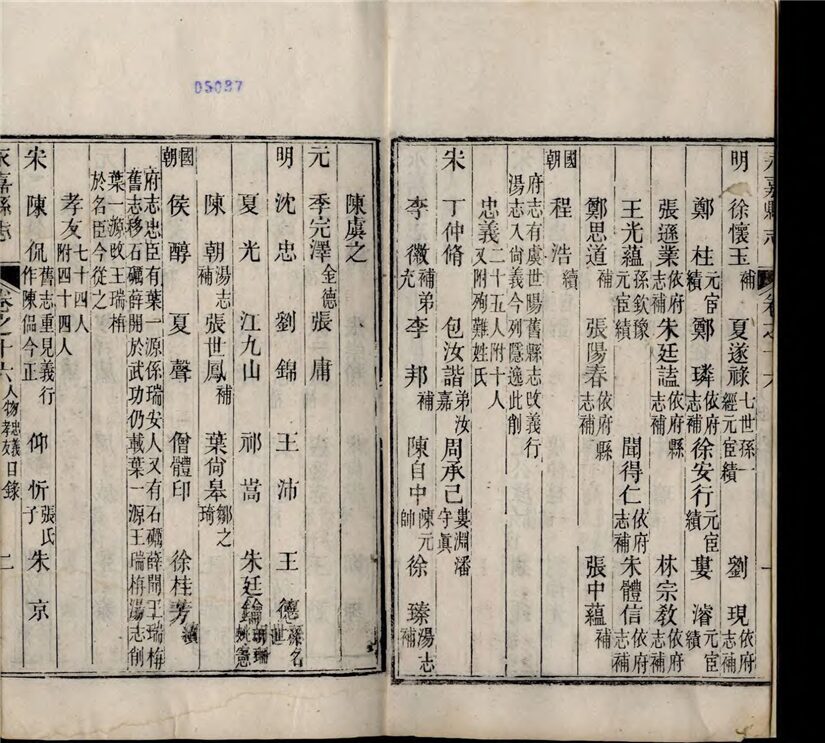 05087
明 徐懷玉補 夏遂祿七世孫一經元宦績 劉現依府志補
鄭桂元宦績 鄭璘依府志補 徐安行元宦績 婁濬元宦績
張遜業依府志補 朱廷諡依府縣志補 林宗教依府志補
王光蘊孫欽豫元宦績 聞得仁依府志補 朱體信依府志補
鄭思道補 張陽春依府縣志補 張中蘊補
國朝 程浩續
府志有虞世陽舊縣志改義行
湯志入尚義今列隱逸此削
忠義二十五人附十人又附殉難姓氏
宋 丁仲脩 包汝諧弟汝嘉 周承己婁淵潘守眞
李徽補弟充 李邦補 陳自中陳元帥 徐臻湯志補
陳虞之
元 季完澤全德 張庸
明 沈忠 劉錦 王沛 王德孫名世
夏光 江九山 祁嵩 朱廷鑰
陳朝湯志補 張世鳳補 葉尙皋鄒之琦
國朝 侯醇 夏聲 僧體印 徐桂芳續
府志忠臣有葉一源係瑞安人又有石礪薛開王瑞栴
舊志移石礪薛開於武功仍載葉一源王瑞栴湯志削
葉一源改王瑞栴
於名臣今從之
孝友七十四人附四十四人
宋 陳侃舊志重見義行作陳偘今正 仰忻子 張氏 朱京
永嘉縣志 卷之十六 人物 忠義 孝友 目錄 二